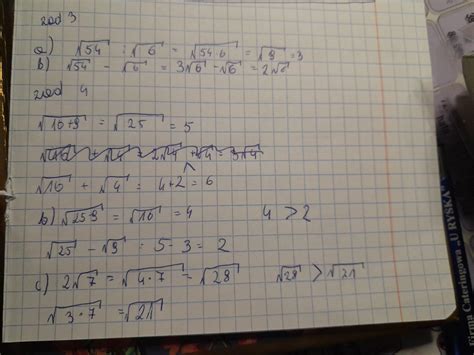 zad 3
a) √54 : √6 = √54:6 = √9 = 3
b) √54 - √6 = 3√6 - √6 = 2√6
zad 4
√16+9 = √25 = 5
√16 + √4 = 4+2 = 6
b) √25-9 = √16 = 4 4 > 2
√25 - √9 = 5-3 = 2
c) 2√7 = √4·7 = √28 √28 > √21
√3·7 = √21
Firma Cateringowa „URYSKA”